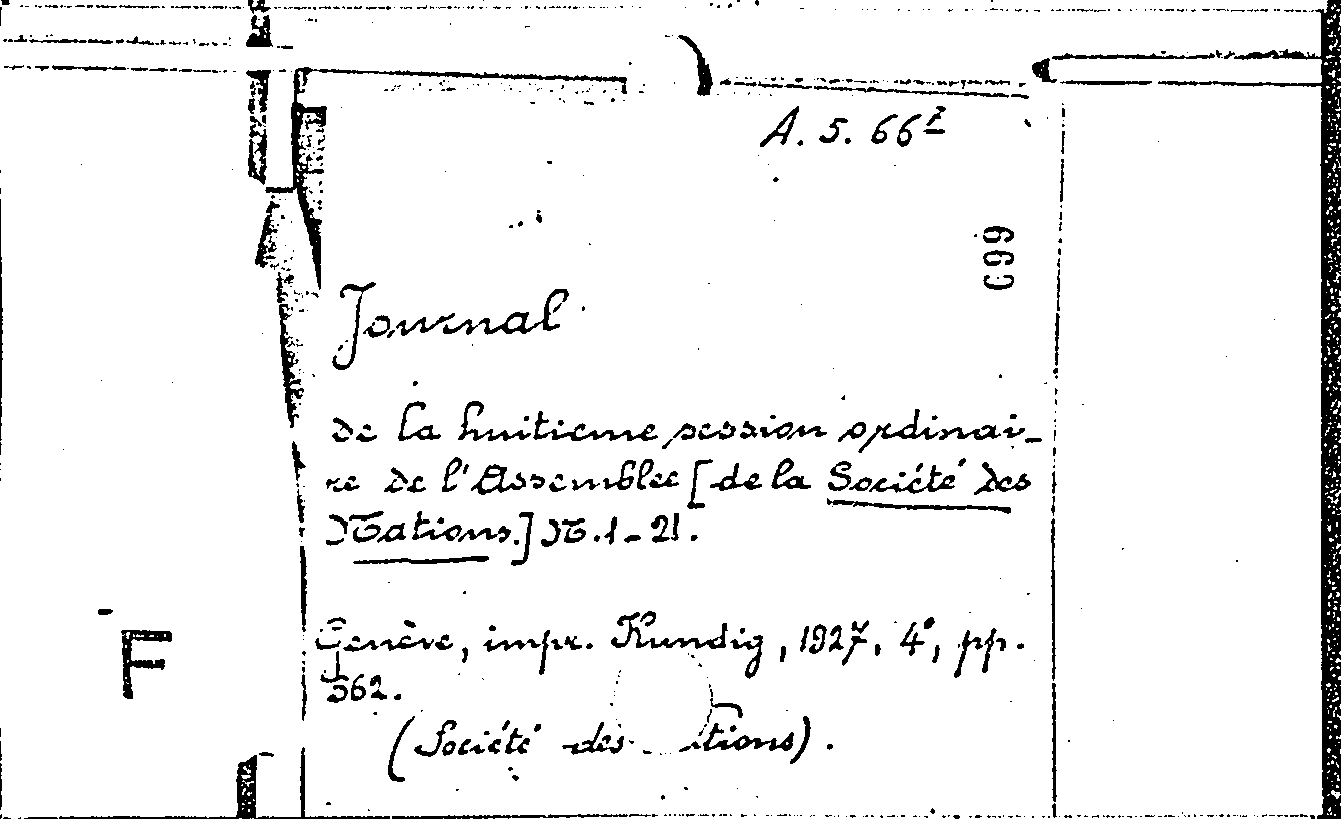 A. 5. 66²
699
Journal
de la huitième session ordinai-
re de l'Assemblée [de la Société des
Nations.] N. 1-21.
Genève, impr. Kundig, 1927, 4°, pp.
362.
(Société des tions).
F